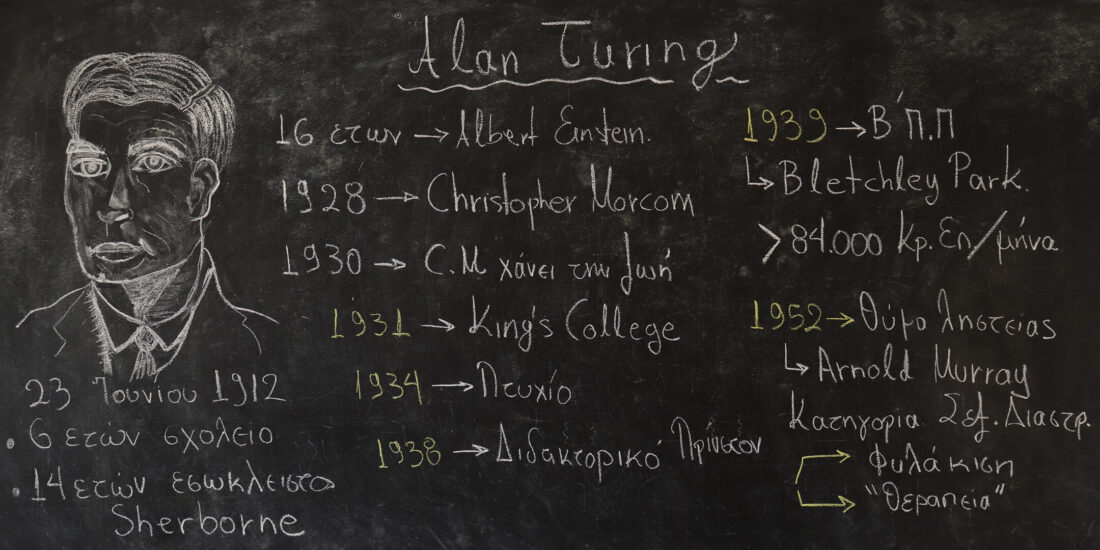 Alan Turing
23 Ιουνίου 1912
• 6 ετών σχολειο
• 14 ετών εσωκλειστο
Sherborne
16 ετων → Albert Einstein.
1928 → Christopher Morcom
1930 → C.M χάνει την ζωή
1931 → King's College
1934 → Πτυχίο
1938 → Διδακτορικό Πρίνστον
1939 → Β΄Π.Π
↳ Bletchley Park.
> 84.000 Κρ. Επ/μήνα
1952 → Θύμα ληστείας
↳ Arnold Murray
Κατηγορια Σεξ. Διαστρ.
→ Φυλάκιση
→ "Θεραπεία"